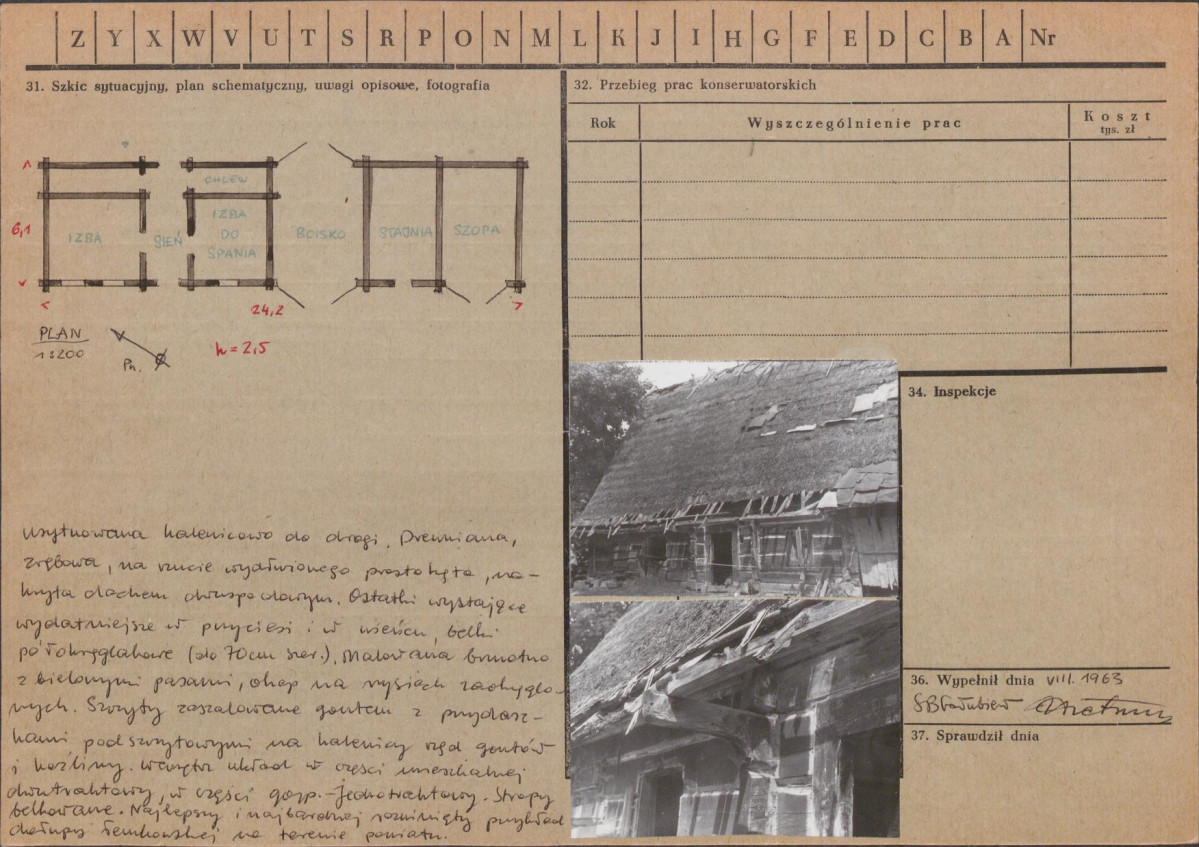 Z Y X W V U T S R P O N M L K J I H G F E D C B A Nr
31. Szkic sytuacyjny, plan schematyczny, uwagi opisowe, fotografia
CHLEW
IZBA
SIEŃ
IZBA
DO
SPANIA
BOISKO
STAJNIA
SZOPA
6,1
24,2
PLAN
1:200
Pn.
h = 2,5
usytuowana kalenicowo do drogi. Drewniana,
zrębowa, na rzucie wydłużonego prostokąta, na-
kryta dachem dwuspadowym. Ostatki wystające
wydatniejsze w przyciesi i w wieńcu, belki
półokrąglakowe (do 70cm szer.). Malowana brunatno
z bielonymi pasami, okap na rysiach zaokrąglo-
nych. Szczyty zaszalowane gontem z przydasz-
kami podszczytowymi na kalenicy rząd gontów
i koźliny. Wewnątrz układ w części mieszkalnej
dwutraktowy, w części gosp.-jednotraktowy. Stropy
belkowane. Najlepszy i najbardziej rozwinięty przykład
chałupy łemkowskiej na terenie powiatu.
32. Przebieg prac konserwatorskich
Rok
Wyszczególnienie prac
Koszt
tys. zł
34. Inspekcje
36. Wypełnił dnia VIII. 1963
37. Sprawdził dnia